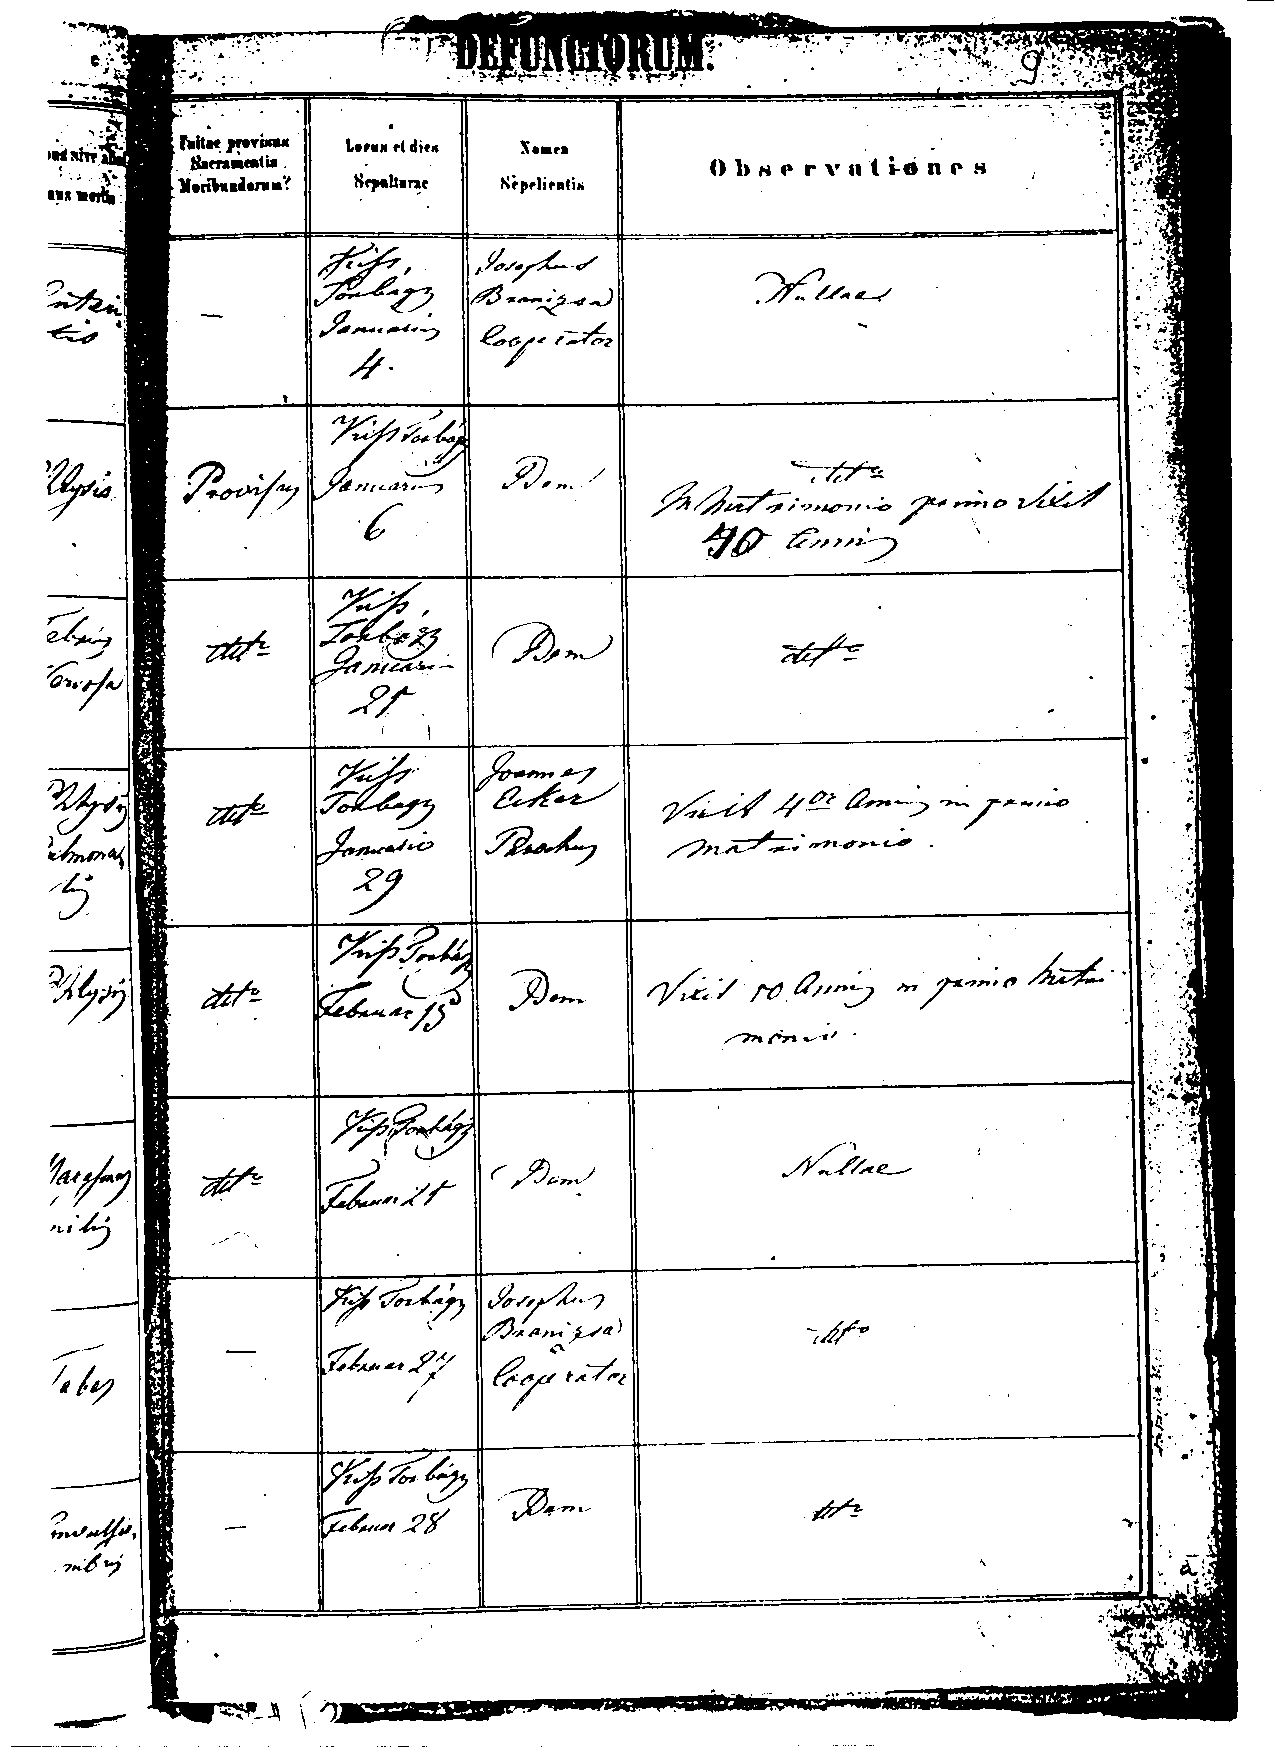 DEFUNCTORUM.
9
Fuitne provisus
Sacramentis
Moribundorum?
Locus et dies
Sepulturae
Nomen
Sepelientis
Observationes
—
Kiss,
Torbágy
Januarius
4.
Josephus
Branizsa
Cooperator
Nullae
Provisus
Kiss Torbágy
Januarius
6
Idem
detto
In Matrimonio primo vixit
40 Annis
detto
Kiss,
Torbágy
Januari
21
Idem
detto
detto
Kiss
Torbagy
Januario
29
Joannes
Parochus
Vixit 4or Annis in primo
matrimonio.
detto
Kiss Torbágy
Februar 15
Idem
Vixit 10 Annis in primo Matri
monio.
detto
Kiss Torbágy
Februar 21
Idem
Nullae
—
Kiss Torbágy
Februar 27
Josephus
Branizsa
Cooperator
detto
—
Kiss Torbágy
Februar 28
Idem
detto